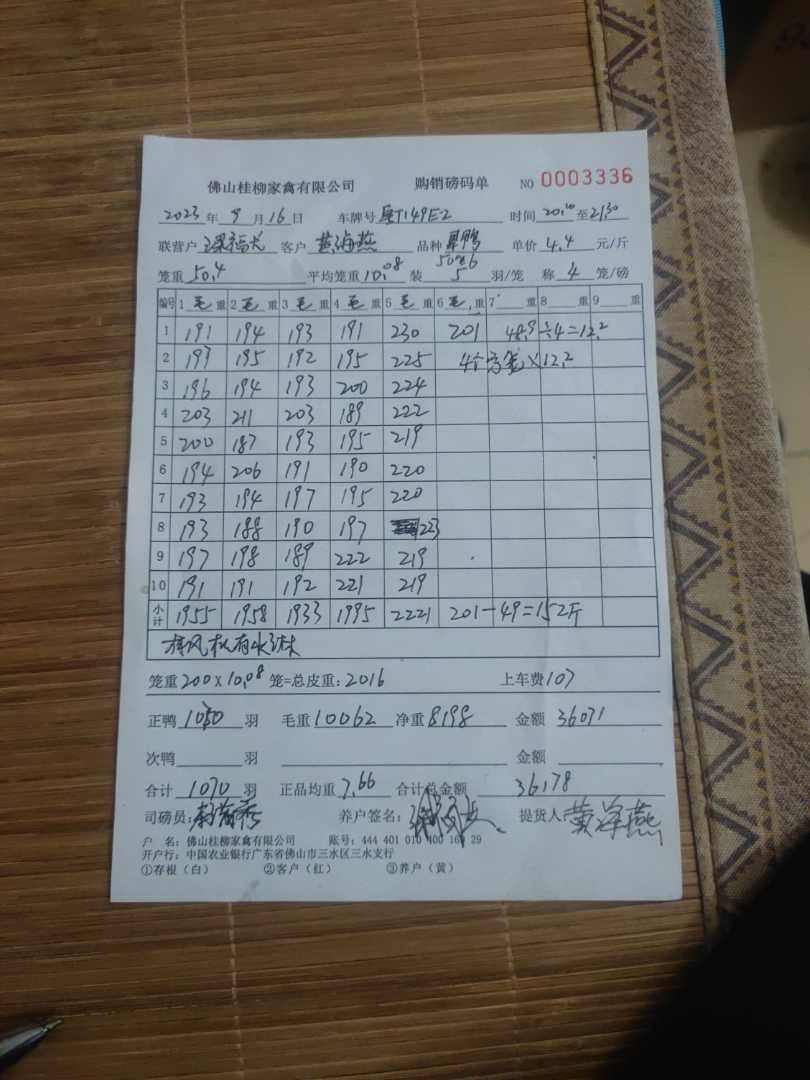 佛山桂柳家禽有限公司 购销磅码单 NO 0003336
2023年9月16日 车牌号 149E2 时间 至2130
联营户 客户 黄海燕 品种 鸭 单价 4.4 元/斤
笼重 50.4 平均笼重 10.08 装 5 羽/笼 称 4 笼/磅
编号 1 毛 重 2 毛 重 3 毛 重 4 毛 重 5 毛 重 6 毛 重 7 重 8 重 9 重
1 191 194 193 191 230 201 48.9÷4=12.2
2 197 195 192 195 225 4个 笼×12.2
3 196 194 193 200 224
4 203 211 203 189 222
5 200 187 193 195 219
6 194 206 191 190 220
7 193 194 197 195 220
8 193 188 190 197 223
9 197 198 189 222 219
10 191 191 192 221 219
小计 1955 1958 1933 1995 2221 201-49=152斤
风机有水
笼重 200×10.08 笼=总皮重:2016 上车费 107
正鸭 羽 毛重 10062 净重 8198 金额 36071
次鸭 羽 金额
合计 1070 羽 正品均重 7.66 合计总金额 36178
司磅员: 养户签名: 提货人 黄海燕
户 名: 佛山桂柳家禽有限公司 账号: 444 401 010 400 29
开户行: 中国农业银行广东省佛山市三水区三水支行
①存根(白) ②客户(红) ③养户(黄)